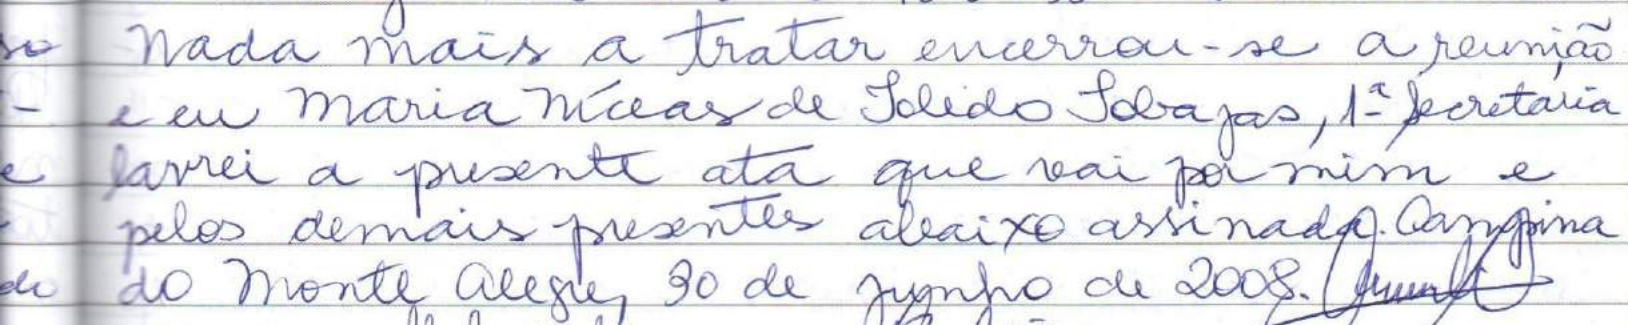 Nada mais a tratar encerrou-se a reunião
e eu Maria Níceas de Toledo Sobajas, 1ª Secretária
lavrei a presente ata que vai por mim e
pelos demais presentes abaixo assinada. Campina
do Monte Alegre, 30 de junho de 2008.